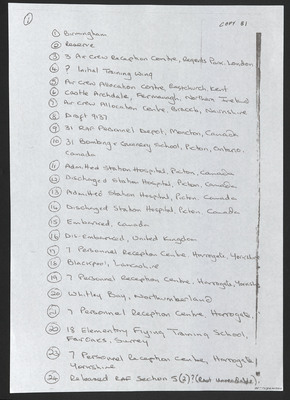 ①
COPY B1
① Birmingham
② Reserve
③ 3 Air Crew Reception Centre, Regents Park, London
④ ? Initial Training Wing
⑤ Air Crew Allocation Centre, Eastchurch, Kent
⑥ Castle Archdale, Fermanagh, Northern Ireland
⑦ Air Crew Allocation Centre, Nairnshire
⑧ Draft 9137
⑨ 31 RAF Personnel Depot, Moncton, Canada
⑩ 31 Bombing & Gunnery School, Picton, Ontario.
Canada
⑪ Admitted Station Hospital, Picton, Canada
⑫ Discharged Station Hospital, Picton, Canada
⑬ Admitted Station Hospital, Picton, Canada
⑭ Discharged Station Hospital, Picton, Canada
⑮ Embarked, Canada
⑯ Dis-Embarked, United Kingdom
⑰ 7 Personnel Reception Centre, Harrogate, Yorkshire
⑱ Blackpool, Lancashire
⑲ 7 Personnel Reception Centre, Harrogate, Yorkshire
⑳ Whitley Bay, Northumberland
㉑ 7 Personnel Reception Centre, Harrogate,
㉒ 18 Elementary Flying Training School,
Fairoaks, Surrey
㉓ 7 Personnel Reception Centre, Harrogate,
Yorkshire
㉔ Released RAF Section 5(2)? (Part Unreadable).